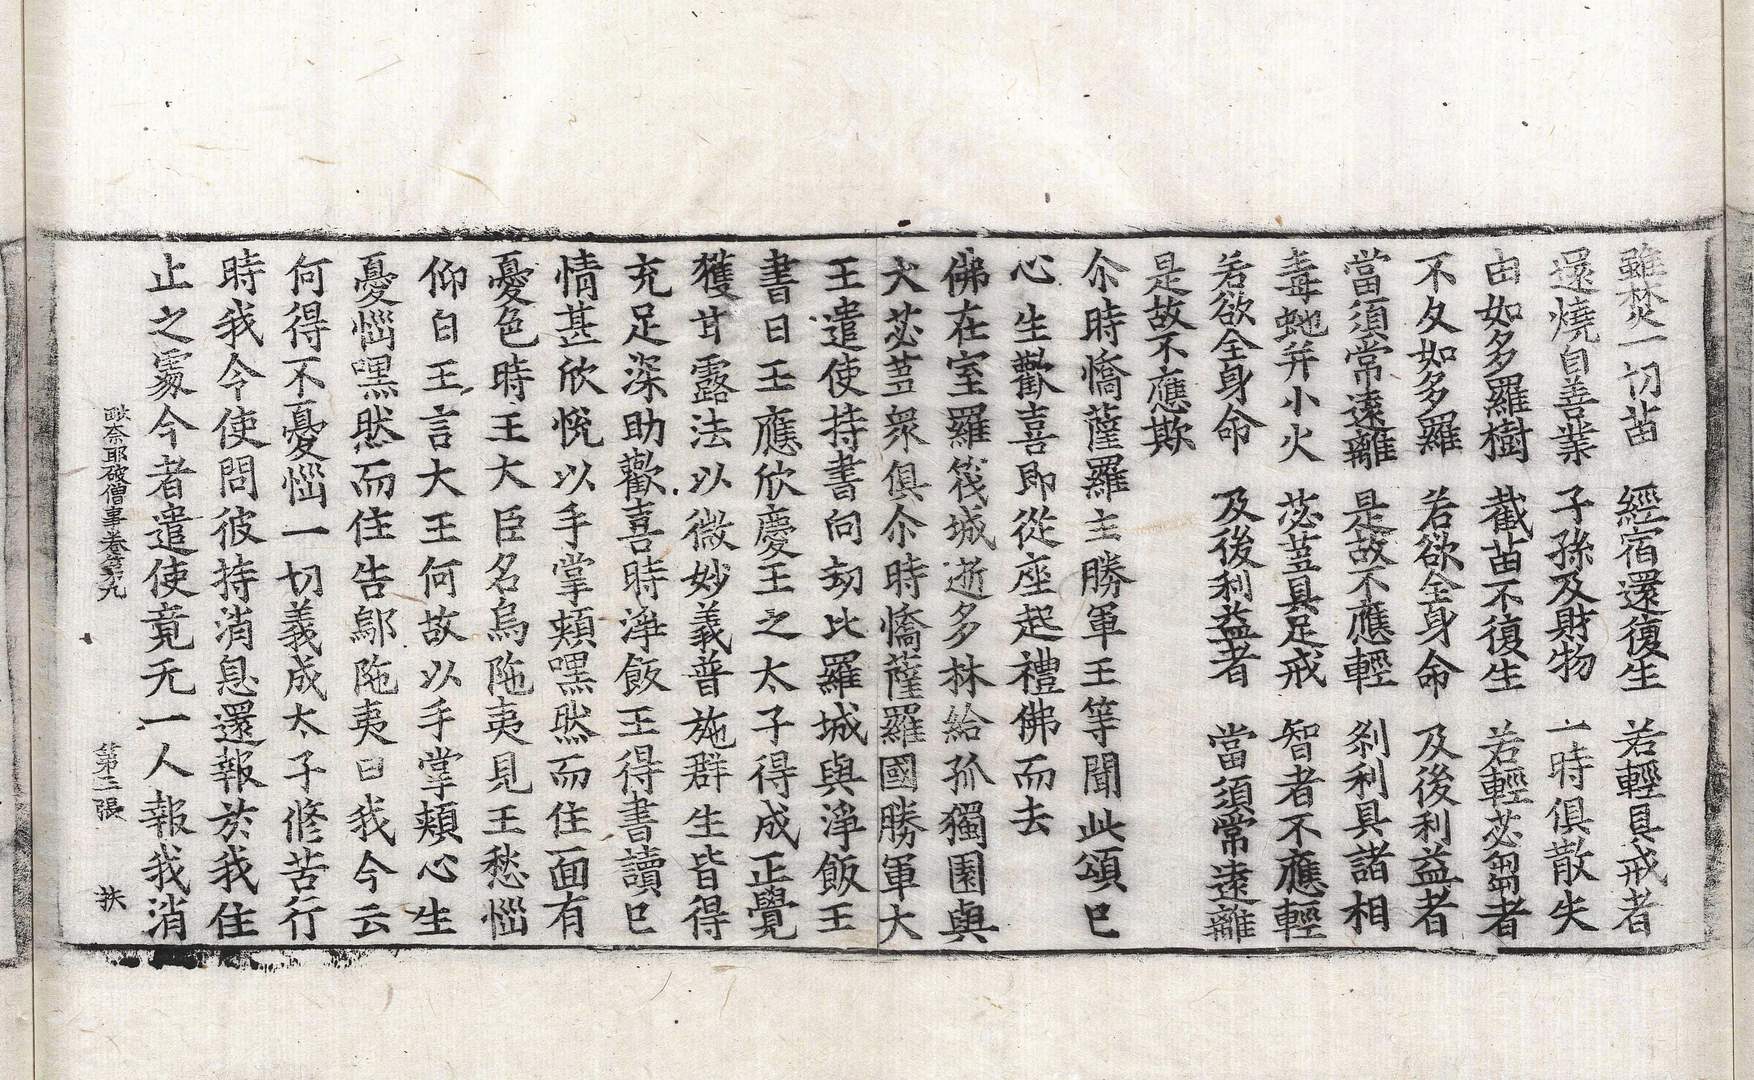 雖焚一切苗　經宿還復生　若輕具戒者
還燒自善業　子孫及財物　一時俱散失
由如多羅樹　截苗不復生　若輕苾芻者
不久如多羅　若欲全身命　及後利益者
當須常遠離　是故不應輕　刹利具諸相
毒虵并小火　苾蒭具足戒　智者不應輕
若欲全身命　及後利益者　當須常遠離
是故不應欺
尒時憍薩羅主勝軍王等聞此頌已
心生歡喜即從座起禮佛而去
佛在室羅筏城逝多林給孤獨園與
大苾蒭衆俱尒時憍薩羅國勝軍大
王遣使持書向劫比羅城與淨飯王
書曰王應欣慶王之太子得成正覺
獲甘露法以微妙義普施群生皆得
充足深助歡喜時淨飯王得書讀已
情甚欣悅以手掌頰嘿然而住面有
憂色時王大臣名烏陁夷見王愁惱
仰白王言大王何故以手掌頰心生
憂惱嘿然而住告鄔陁夷曰我今云
何得不憂惱一切義成太子修苦行
時我令使問彼持消息還報於我住
止之處今者遣使竟无一人報我消
奈耶破僧事卷第九　第三張　扶